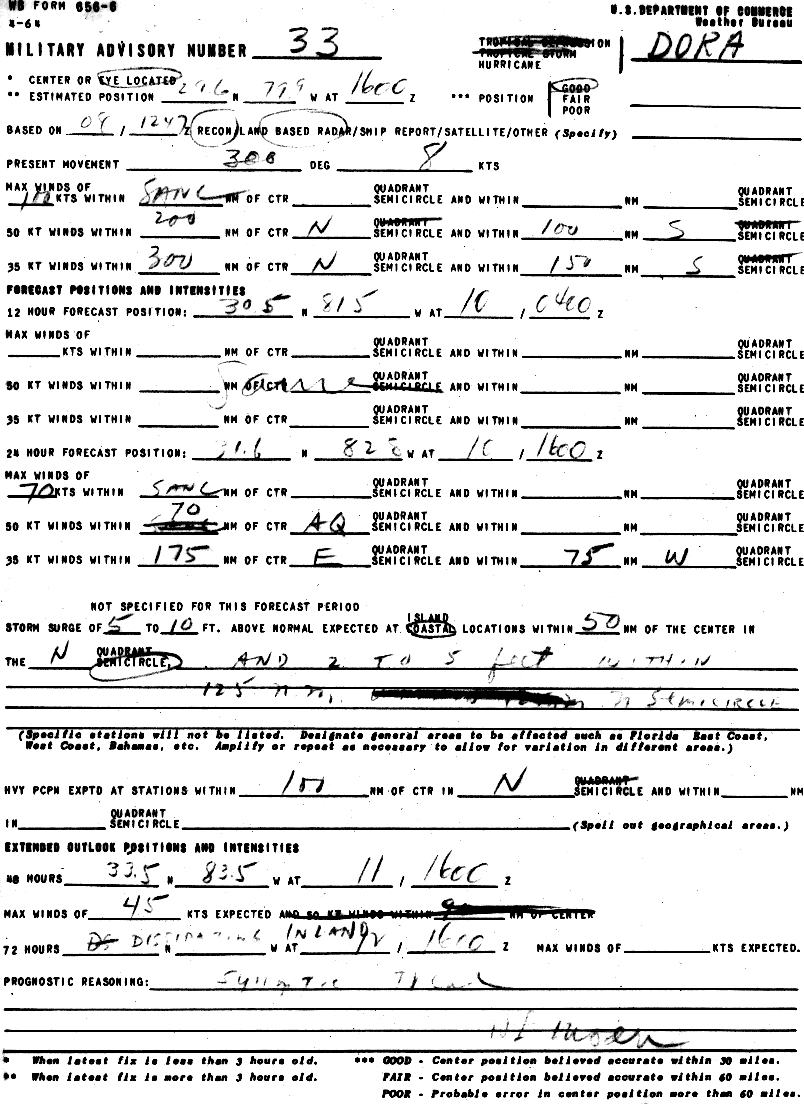 WB FORM 656-6
4-64
U.S. DEPARTMENT OF COMMERCE
Weather Bureau
MILITARY ADVISORY NUMBER 33
TROPICAL DEPRESSION
TROPICAL STORM
HURRICANE
DORA
* CENTER OR EYE LOCATED
** ESTIMATED POSITION 29.6 N 79.9 W AT 1600 Z *** POSITION GOOD
FAIR
POOR
BASED ON 09 / 1247 Z RECON/LAND BASED RADAR/SHIP REPORT/SATELLITE/OTHER (Specify)
PRESENT MOVEMENT 300 DEG 8 KTS
MAX WINDS OF QUADRANT QUADRANT
100 KTS WITHIN SAME NM OF CTR SEMICIRCLE AND WITHIN NM SEMICIRCLE
50 KT WINDS WITHIN 200 NM OF CTR N QUADRANT SEMICIRCLE AND WITHIN 100 NM S QUADRANT SEMICIRCLE
35 KT WINDS WITHIN 300 NM OF CTR N QUADRANT SEMICIRCLE AND WITHIN 150 NM S QUADRANT SEMICIRCLE
FORECAST POSITIONS AND INTENSITIES
12 HOUR FORECAST POSITION: 30.5 N 81.5 W AT 10 / 0400 Z
MAX WINDS OF QUADRANT QUADRANT
KTS WITHIN NM OF CTR SEMICIRCLE AND WITHIN NM SEMICIRCLE
50 KT WINDS WITHIN NM OF CTR Same QUADRANT SEMICIRCLE AND WITHIN NM QUADRANT SEMICIRCLE
35 KT WINDS WITHIN NM OF CTR QUADRANT SEMICIRCLE AND WITHIN NM QUADRANT SEMICIRCLE
24 HOUR FORECAST POSITION: 31.6 N 82.8 W AT 10 / 1600 Z
MAX WINDS OF QUADRANT QUADRANT
70 KTS WITHIN SAME NM OF CTR SEMICIRCLE AND WITHIN NM SEMICIRCLE
50 KT WINDS WITHIN 70 NM OF CTR AQ QUADRANT SEMICIRCLE AND WITHIN NM QUADRANT SEMICIRCLE
35 KT WINDS WITHIN 175 NM OF CTR E QUADRANT SEMICIRCLE AND WITHIN 75 NM W QUADRANT SEMICIRCLE
NOT SPECIFIED FOR THIS FORECAST PERIOD
STORM SURGE OF 5 TO 10 FT. ABOVE NORMAL EXPECTED AT ISLAND COASTAL LOCATIONS WITHIN 50 NM OF THE CENTER IN
THE N QUADRANT SEMICIRCLE, AND 2 TO 5 feet WITHIN
125 n m, N SEMICIRCLE
(Specific stations will not be listed. Designate general areas to be affected such as Florida East Coast,
West Coast, Bahamas, etc. Amplify or repeat as necessary to allow for variation in different areas.)
HVY PCPN EXPTD AT STATIONS WITHIN 100 NM OF CTR IN N QUADRANT SEMICIRCLE AND WITHIN NM
IN QUADRANT SEMICIRCLE (Spell out geographical areas.)
EXTENDED OUTLOOK POSITIONS AND INTENSITIES
48 HOURS 33.5 N 83.5 W AT 11 / 1600 Z
MAX WINDS OF 45 KTS EXPECTED AND 50 KT WINDS WITHIN NM OF CENTER
72 HOURS DISSIPATING N INLAND W AT 12 / 1600 Z MAX WINDS OF KTS EXPECTED.
PROGNOSTIC REASONING:
* When latest fix is less than 3 hours old.
** When latest fix is more than 3 hours old.
*** GOOD - Center position believed accurate within 30 miles.
FAIR - Center position believed accurate within 60 miles.
POOR - Probable error in center position more than 60 miles.